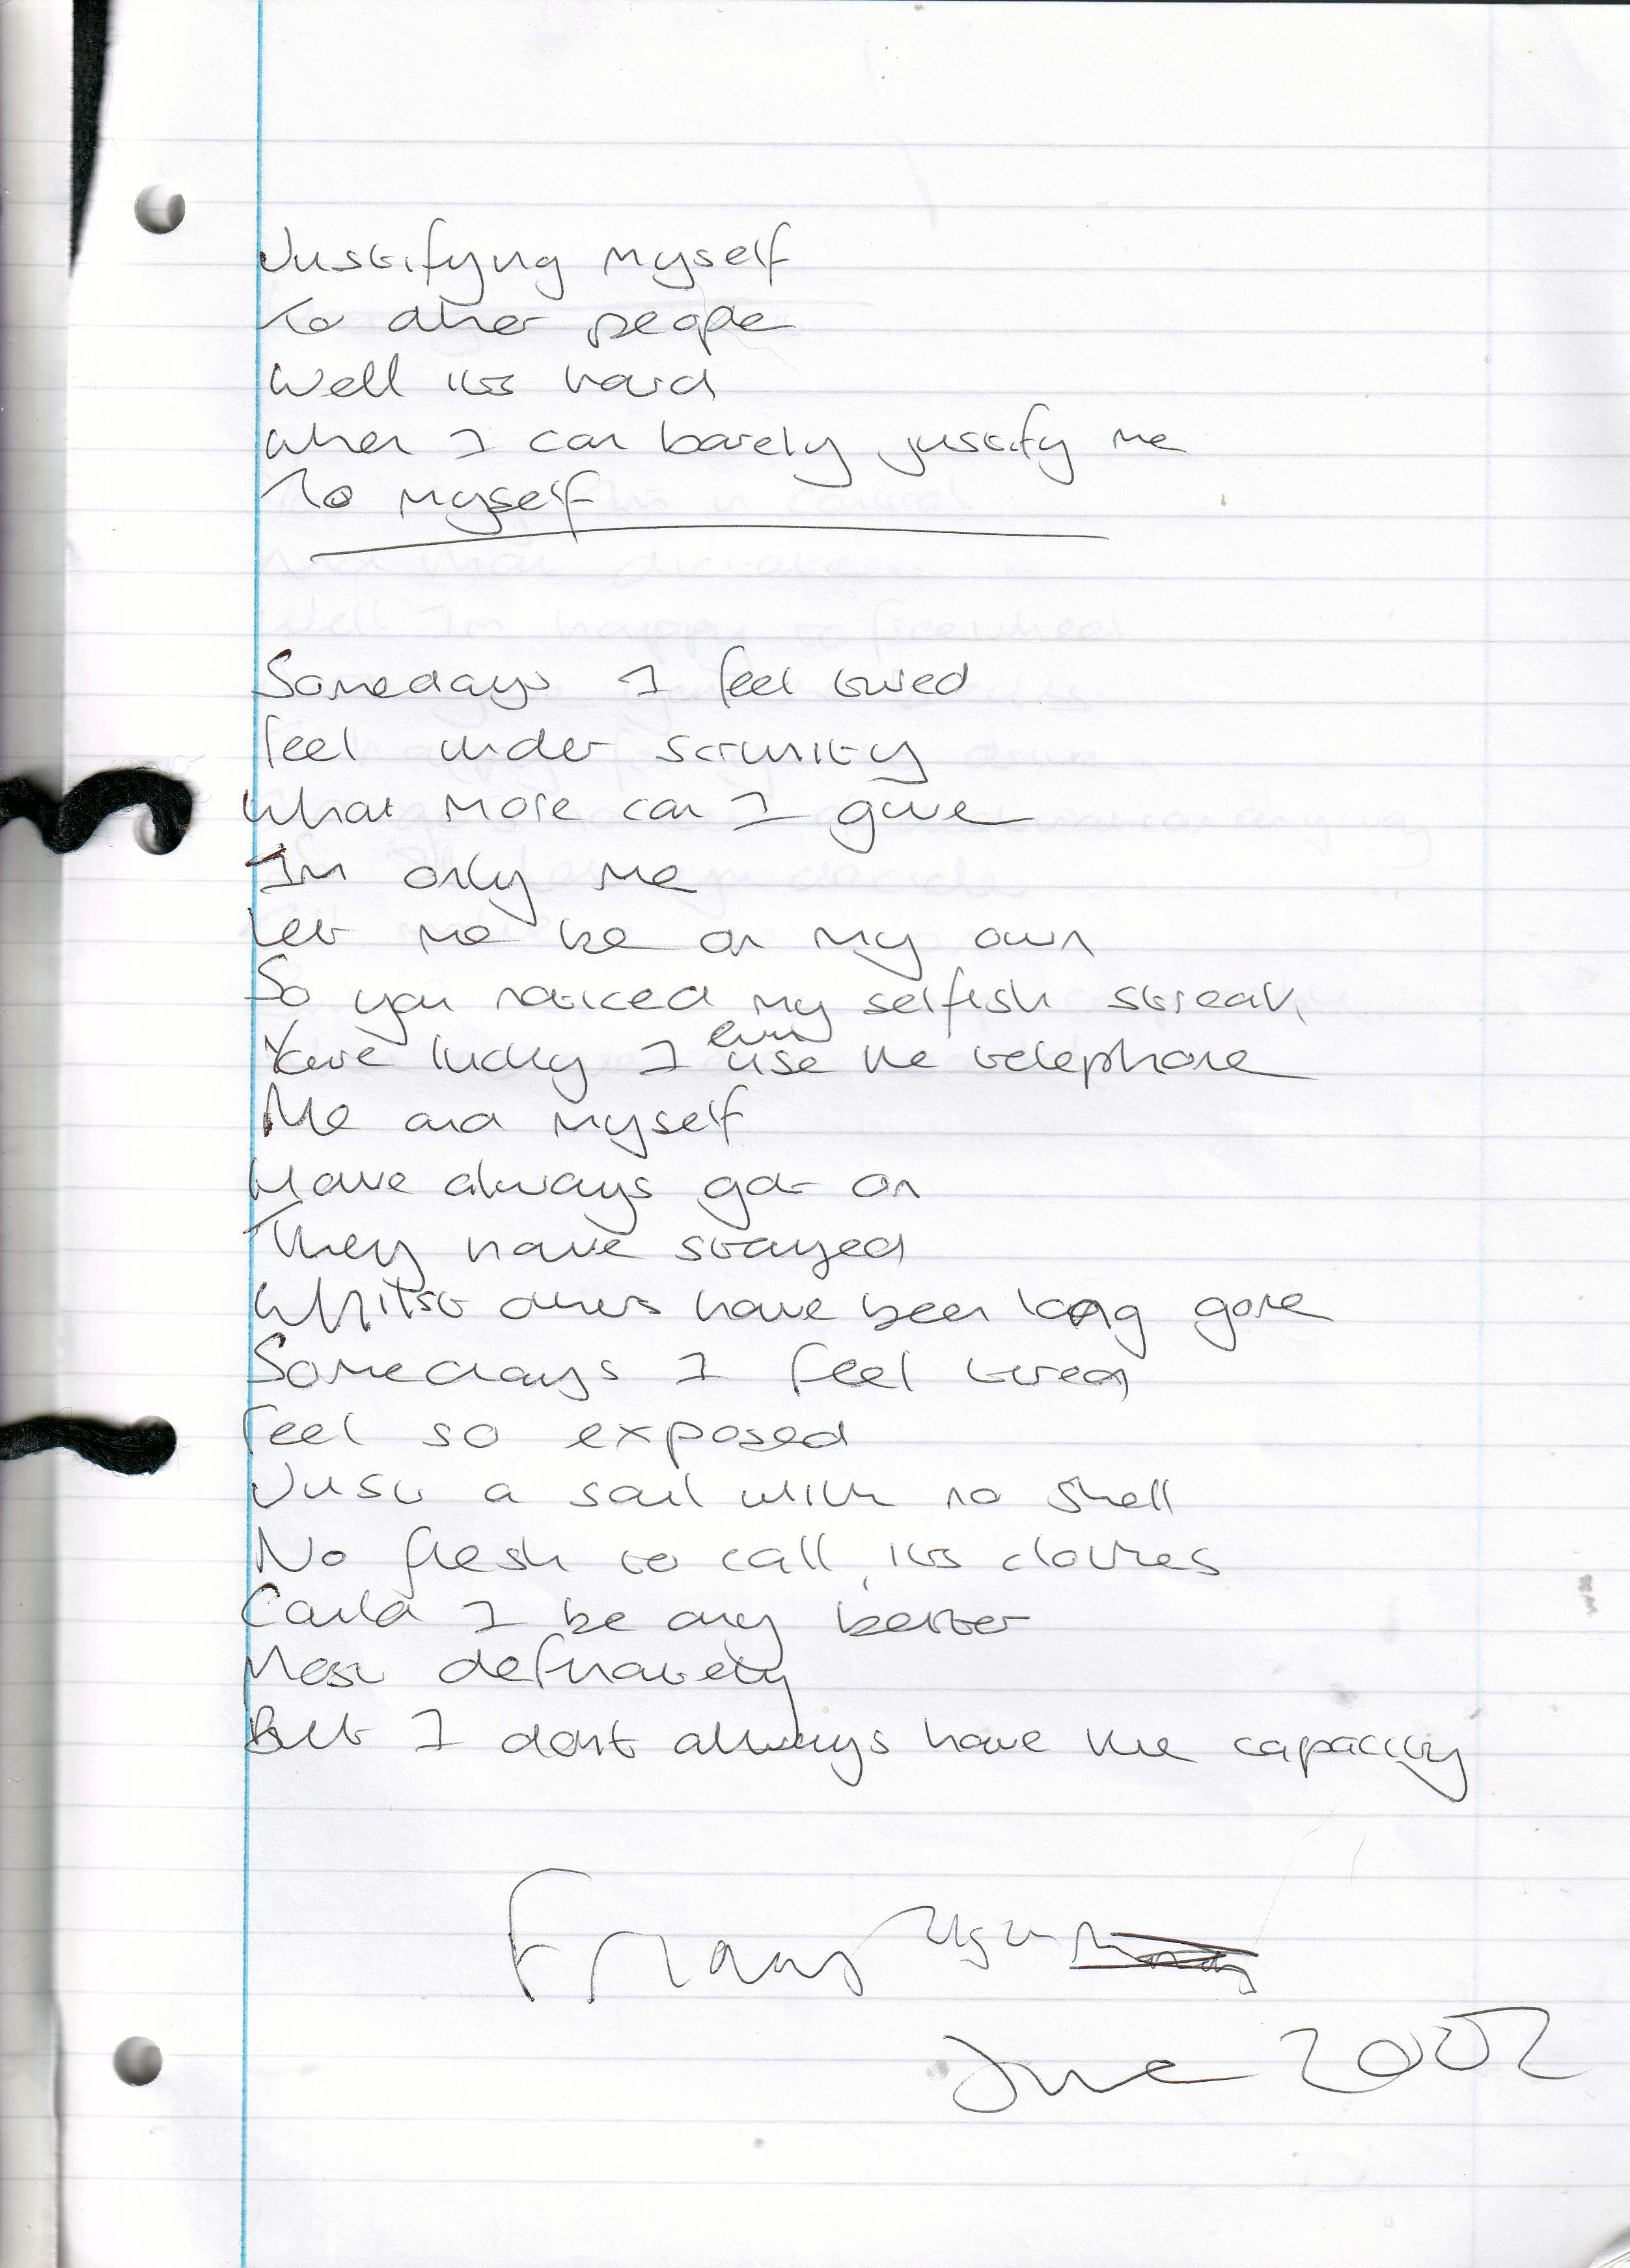 Justifying myself
To other people
Well its hard
When I can barely justify me
To myself
Somedays I feel tired
Feel under scrunity
What more can I give
Im only me
Let me be on my own
So you noticed my selfish streak
Youre lucky I even use the telephone
Me and myself
Have always got on
They have stayed
Whilst others have been long gone
Somedays I feel tired
Feel so exposed
Just a soul with no shell
No flesh to call its clothes
Could I be any better
Most definately
But I dont always have the capacity
Friday
June 2002